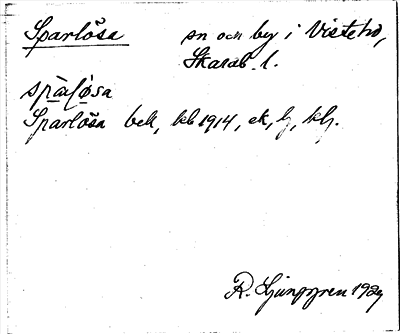 Sparlösa sn och by i Viste hd,
Skarab. l.
spàɹlø̀sa
Sparlösa bek, kb 1914, ek, lj, klj.
R. Ljunggren 1929